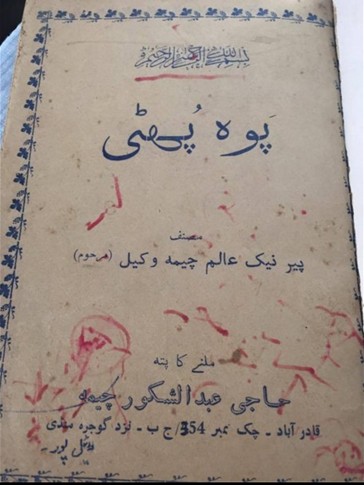 بسم اللہ الرحمن الرحیم
پَوہ پُھٹی
مصنف
پیر نیک عالم چیمہ وکیل (مرحوم)
ملنے کا پتہ
حاجی عبدالشکور چیمہ
قادر آباد ۔ چک نمبر 354/ج ب ۔ نزد گوجرہ منڈی